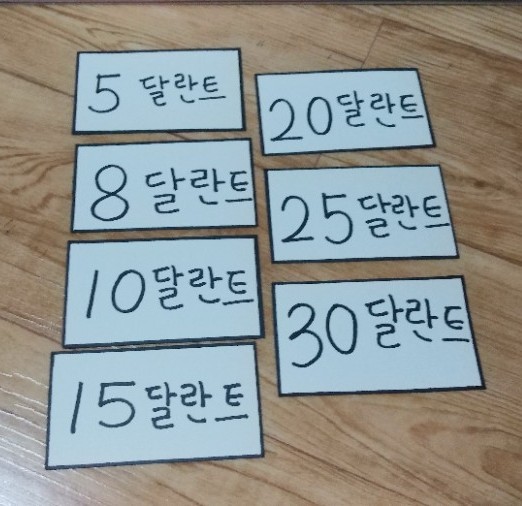 5 달란트
8 달란트
10 달란트
15 달란트
20 달란트
25 달란트
30 달란트